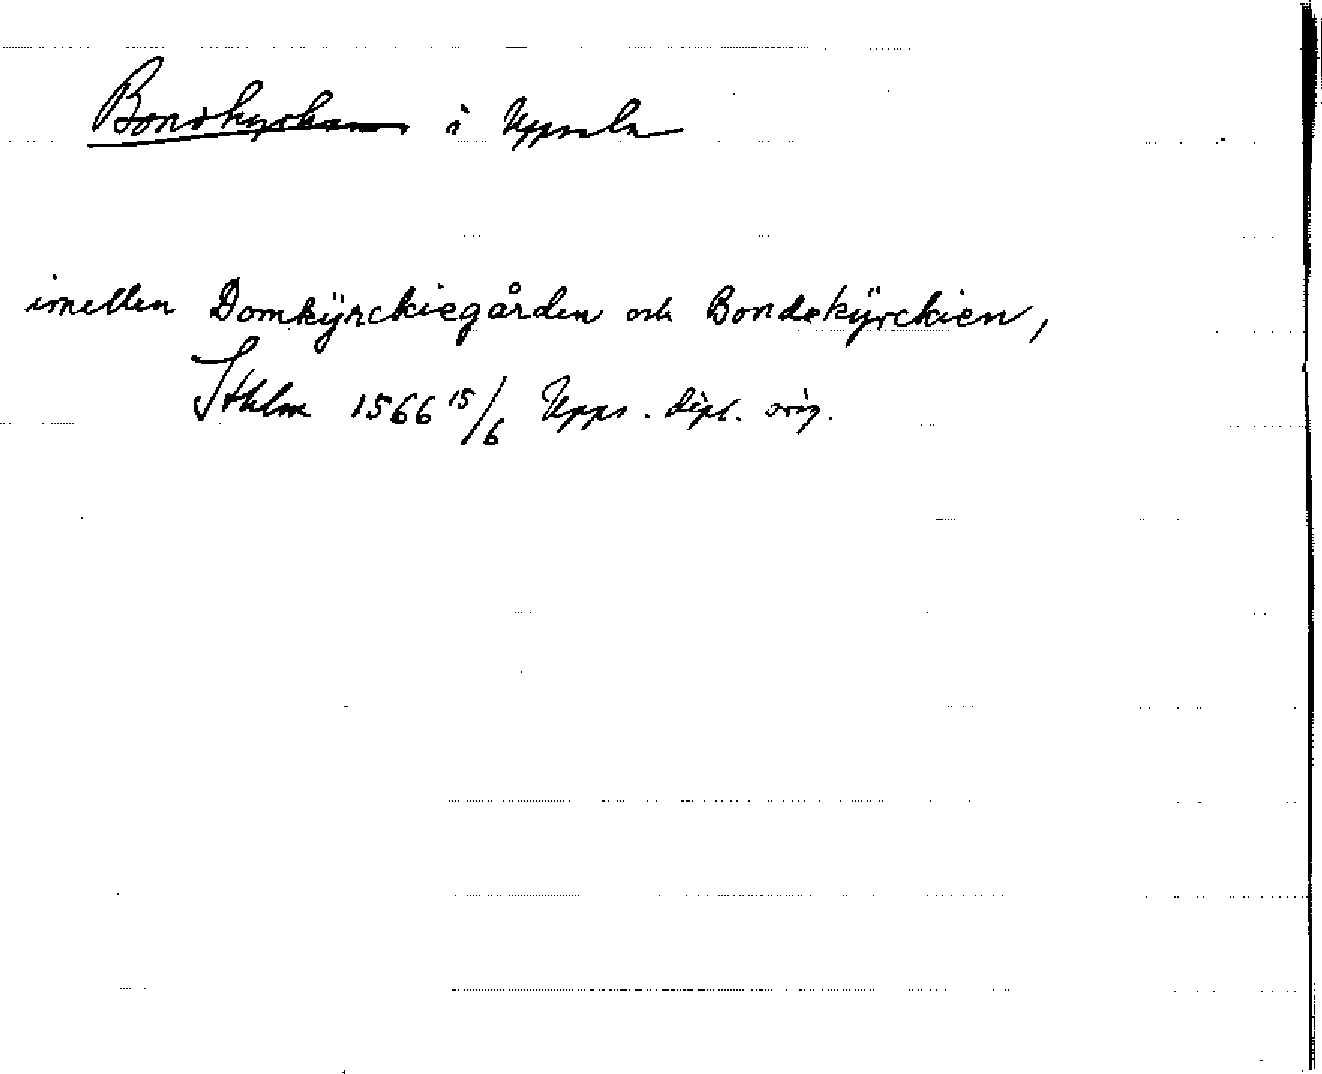 Bondkyrkan i Uppsala
imellen Domkÿrckiegården och Bondekÿrckien,
Sthlm 1566 15/6 Upps. dipl. orig.